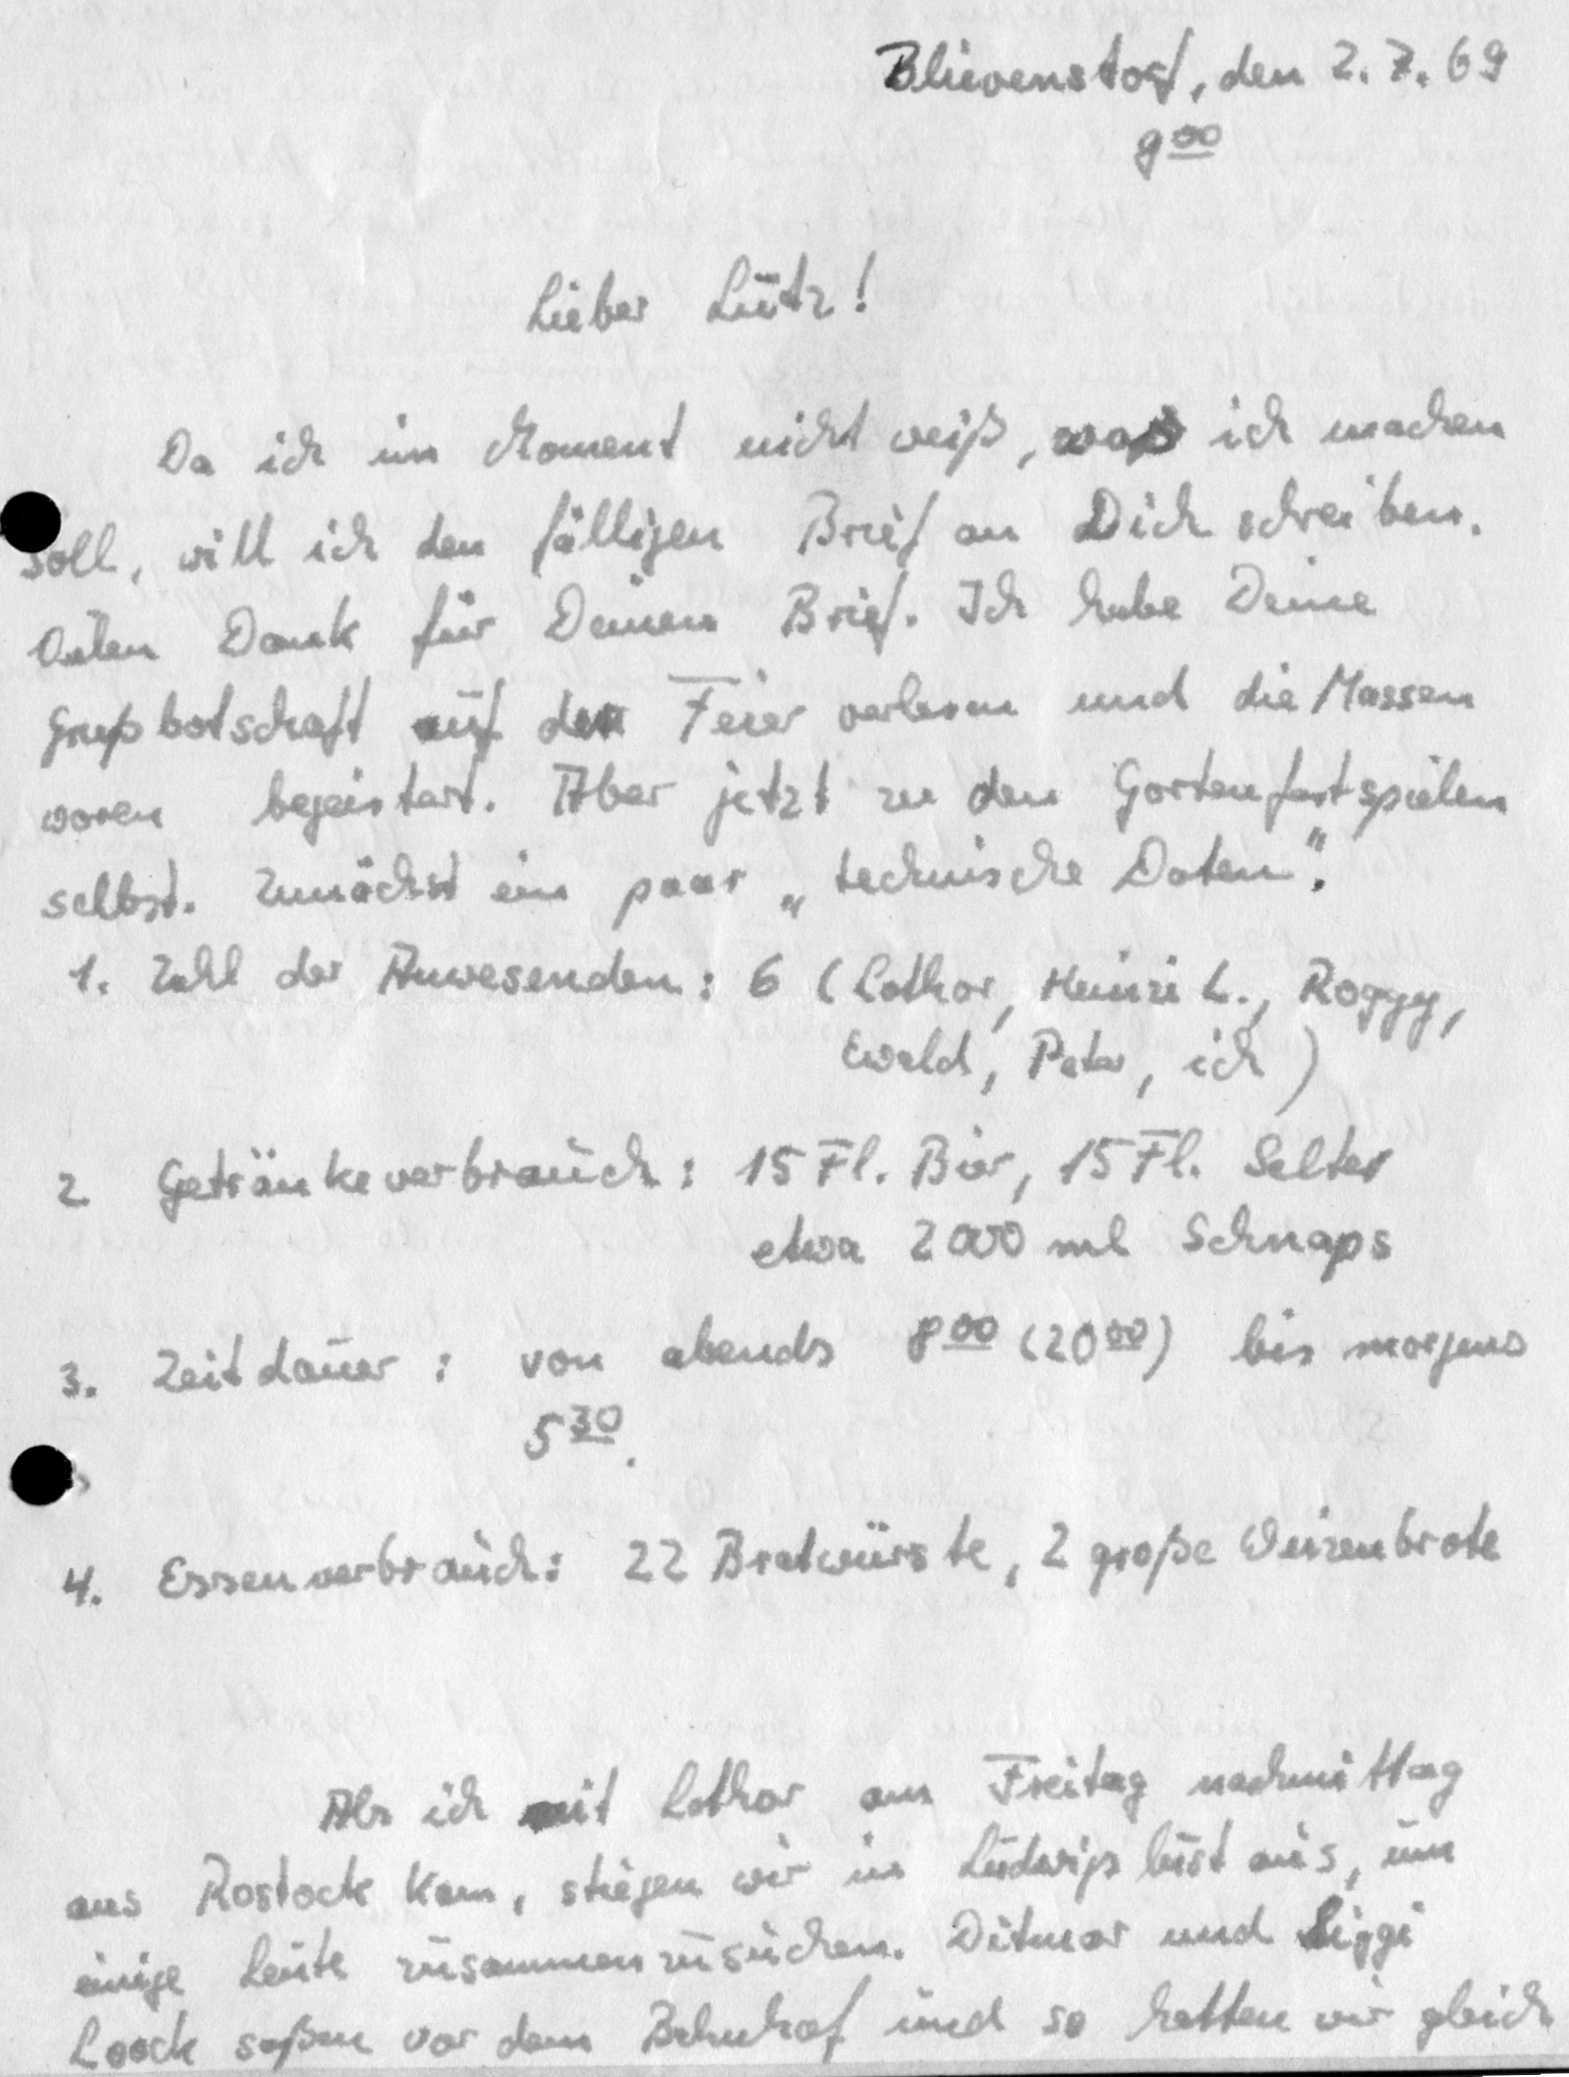 Blievenstorf, den 2.7.69
9 00
Lieber Lütz!
Da ich im Moment nicht weiß, was ich machen
soll, will ich den fälligen Brief an Dich schreiben.
Vielen Dank für Deinen Brief. Ich habe Deine
Grußbotschaft auf der Feier verlesen und die Massen
waren begeistert. Aber jetzt zu den Gartenfestspielen
selbst. Zunächst ein paar „technische Daten“.
1. Zahl der Anwesenden: 6 (Lothar, Heinzi L., Roggy,
Ewald, Peter, ich)
2 Getränkeverbrauch: 15 Fl. Bier, 15 Fl. Selter
etwa 2000 ml Schnaps
3. Zeitdauer: von abends 8 00 (20 00) bis morgens
5 30.
4. Essenverbrauch: 22 Bratwürste, 2 große Weizenbrote
Als ich mit Lothar am Freitag nachmittag
aus Rostock kam, stiegen wir in Ludwigslust aus, um
einige Leute zusammenzusuchen. Ditmar und Siggi
Loock saßen vor dem Bahnhof und so hatten wir gleich